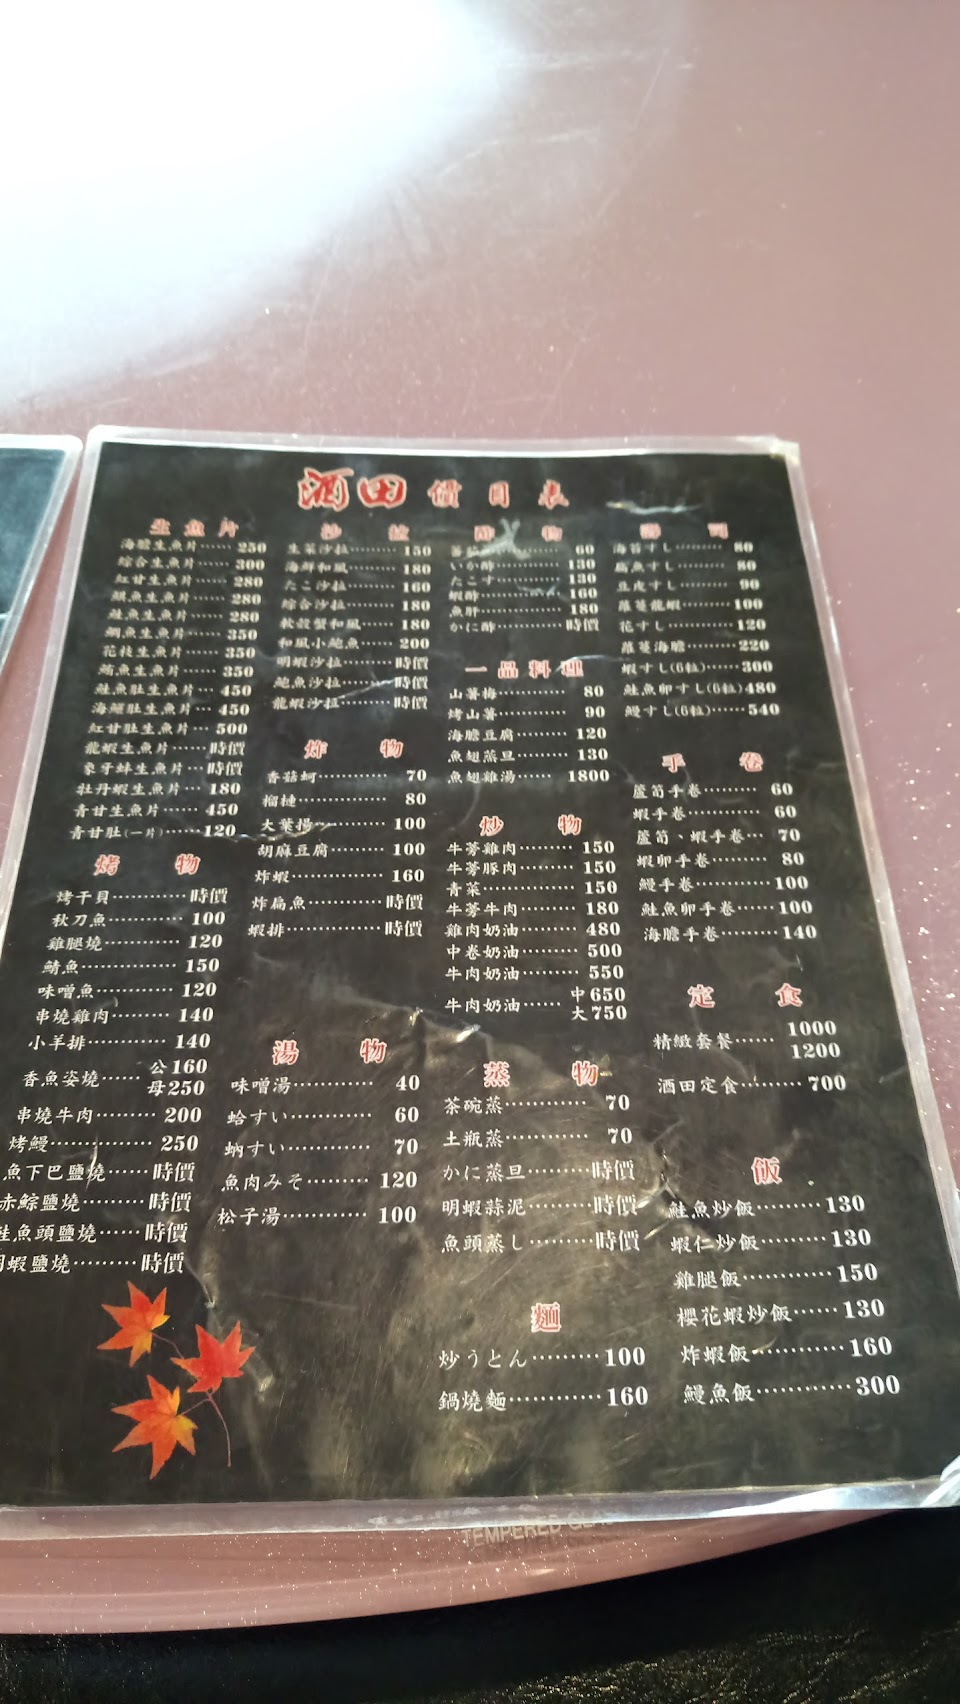 酒田 價目表
生魚片
海膽生魚片…… 250
綜合生魚片…… 300
紅甘生魚片…… 280
旗魚生魚片…… 280
鮭魚生魚片…… 280
鯛魚生魚片…… 350
花枝生魚片…… 350
鮪魚生魚片…… 350
鮭魚肚生魚片… 450
海鱺肚生魚片… 450
紅甘肚生魚片… 500
龍蝦生魚片…… 時價
象牙蚌生魚片… 時價
牡丹蝦生魚片… 180
青甘生魚片…… 450
青甘肚(一片)…… 120
烤物
烤干貝……… 時價
秋刀魚……… 100
雞腿燒……… 120
鯖魚……… 150
味噌魚……… 120
串燒雞肉……… 140
小羊排……… 140
香魚姿燒…… 公160
母250
串燒牛肉……… 200
烤鰻……… 250
魚下巴鹽燒…… 時價
赤鯮鹽燒……… 時價
鮭魚頭鹽燒…… 時價
明蝦鹽燒……… 時價
沙拉
生菜沙拉……… 150
海鮮和風……… 180
たこ沙拉……… 160
綜合沙拉……… 180
軟殼蟹和風…… 180
和風小鮑魚…… 200
明蝦沙拉……… 時價
鮑魚沙拉……… 時價
龍蝦沙拉……… 時價
炸物
香菇蚵……… 70
榴槤……… 80
大葉揚……… 100
胡麻豆腐……… 100
炸蝦……… 160
炸扁魚……… 時價
蝦排……… 時價
湯物
味噌湯……… 40
蛤すい……… 60
蚋すい……… 70
魚肉みそ……… 120
松子湯……… 100
酢物
蕃茄……… 60
いか酢……… 130
たこす……… 130
蝦酢……… 160
魚肝……… 180
かに酢……… 時價
一品料理
山薯梅……… 80
烤山薯……… 90
海膽豆腐……… 120
魚翅蒸旦……… 130
魚翅雞湯…… 1800
炒物
牛蒡雞肉……… 150
牛蒡豚肉……… 150
青菜……… 150
牛蒡牛肉……… 180
雞肉奶油……… 480
中卷奶油……… 500
牛肉奶油……… 550
牛肉奶油…… 中650
大750
蒸物
茶碗蒸……… 70
土瓶蒸……… 70
かに蒸旦……… 時價
明蝦蒜泥……… 時價
魚頭蒸し……… 時價
麵
炒うどん……… 100
鍋燒麵……… 160
壽司
海苔すし……… 80
扁魚すし……… 80
豆皮すし……… 90
蘆蔓龍蝦……… 100
花すし……… 120
蘆蔓海膽……… 220
蝦すし(6粒)…… 300
鮭魚卵すし(6粒) 480
鰻すし(6粒)…… 540
手卷
蘆筍手卷……… 60
蝦手卷……… 60
蘆筍、蝦手卷… 70
蝦卵手卷……… 80
鰻手卷……… 100
鮭魚卵手卷…… 100
海膽手卷……… 140
定食
精緻套餐…… 1000
1200
酒田定食……… 700
飯
鮭魚炒飯……… 130
蝦仁炒飯……… 130
雞腿飯……… 150
櫻花蝦炒飯…… 130
炸蝦飯……… 160
鰻魚飯……… 300
TEMPERED